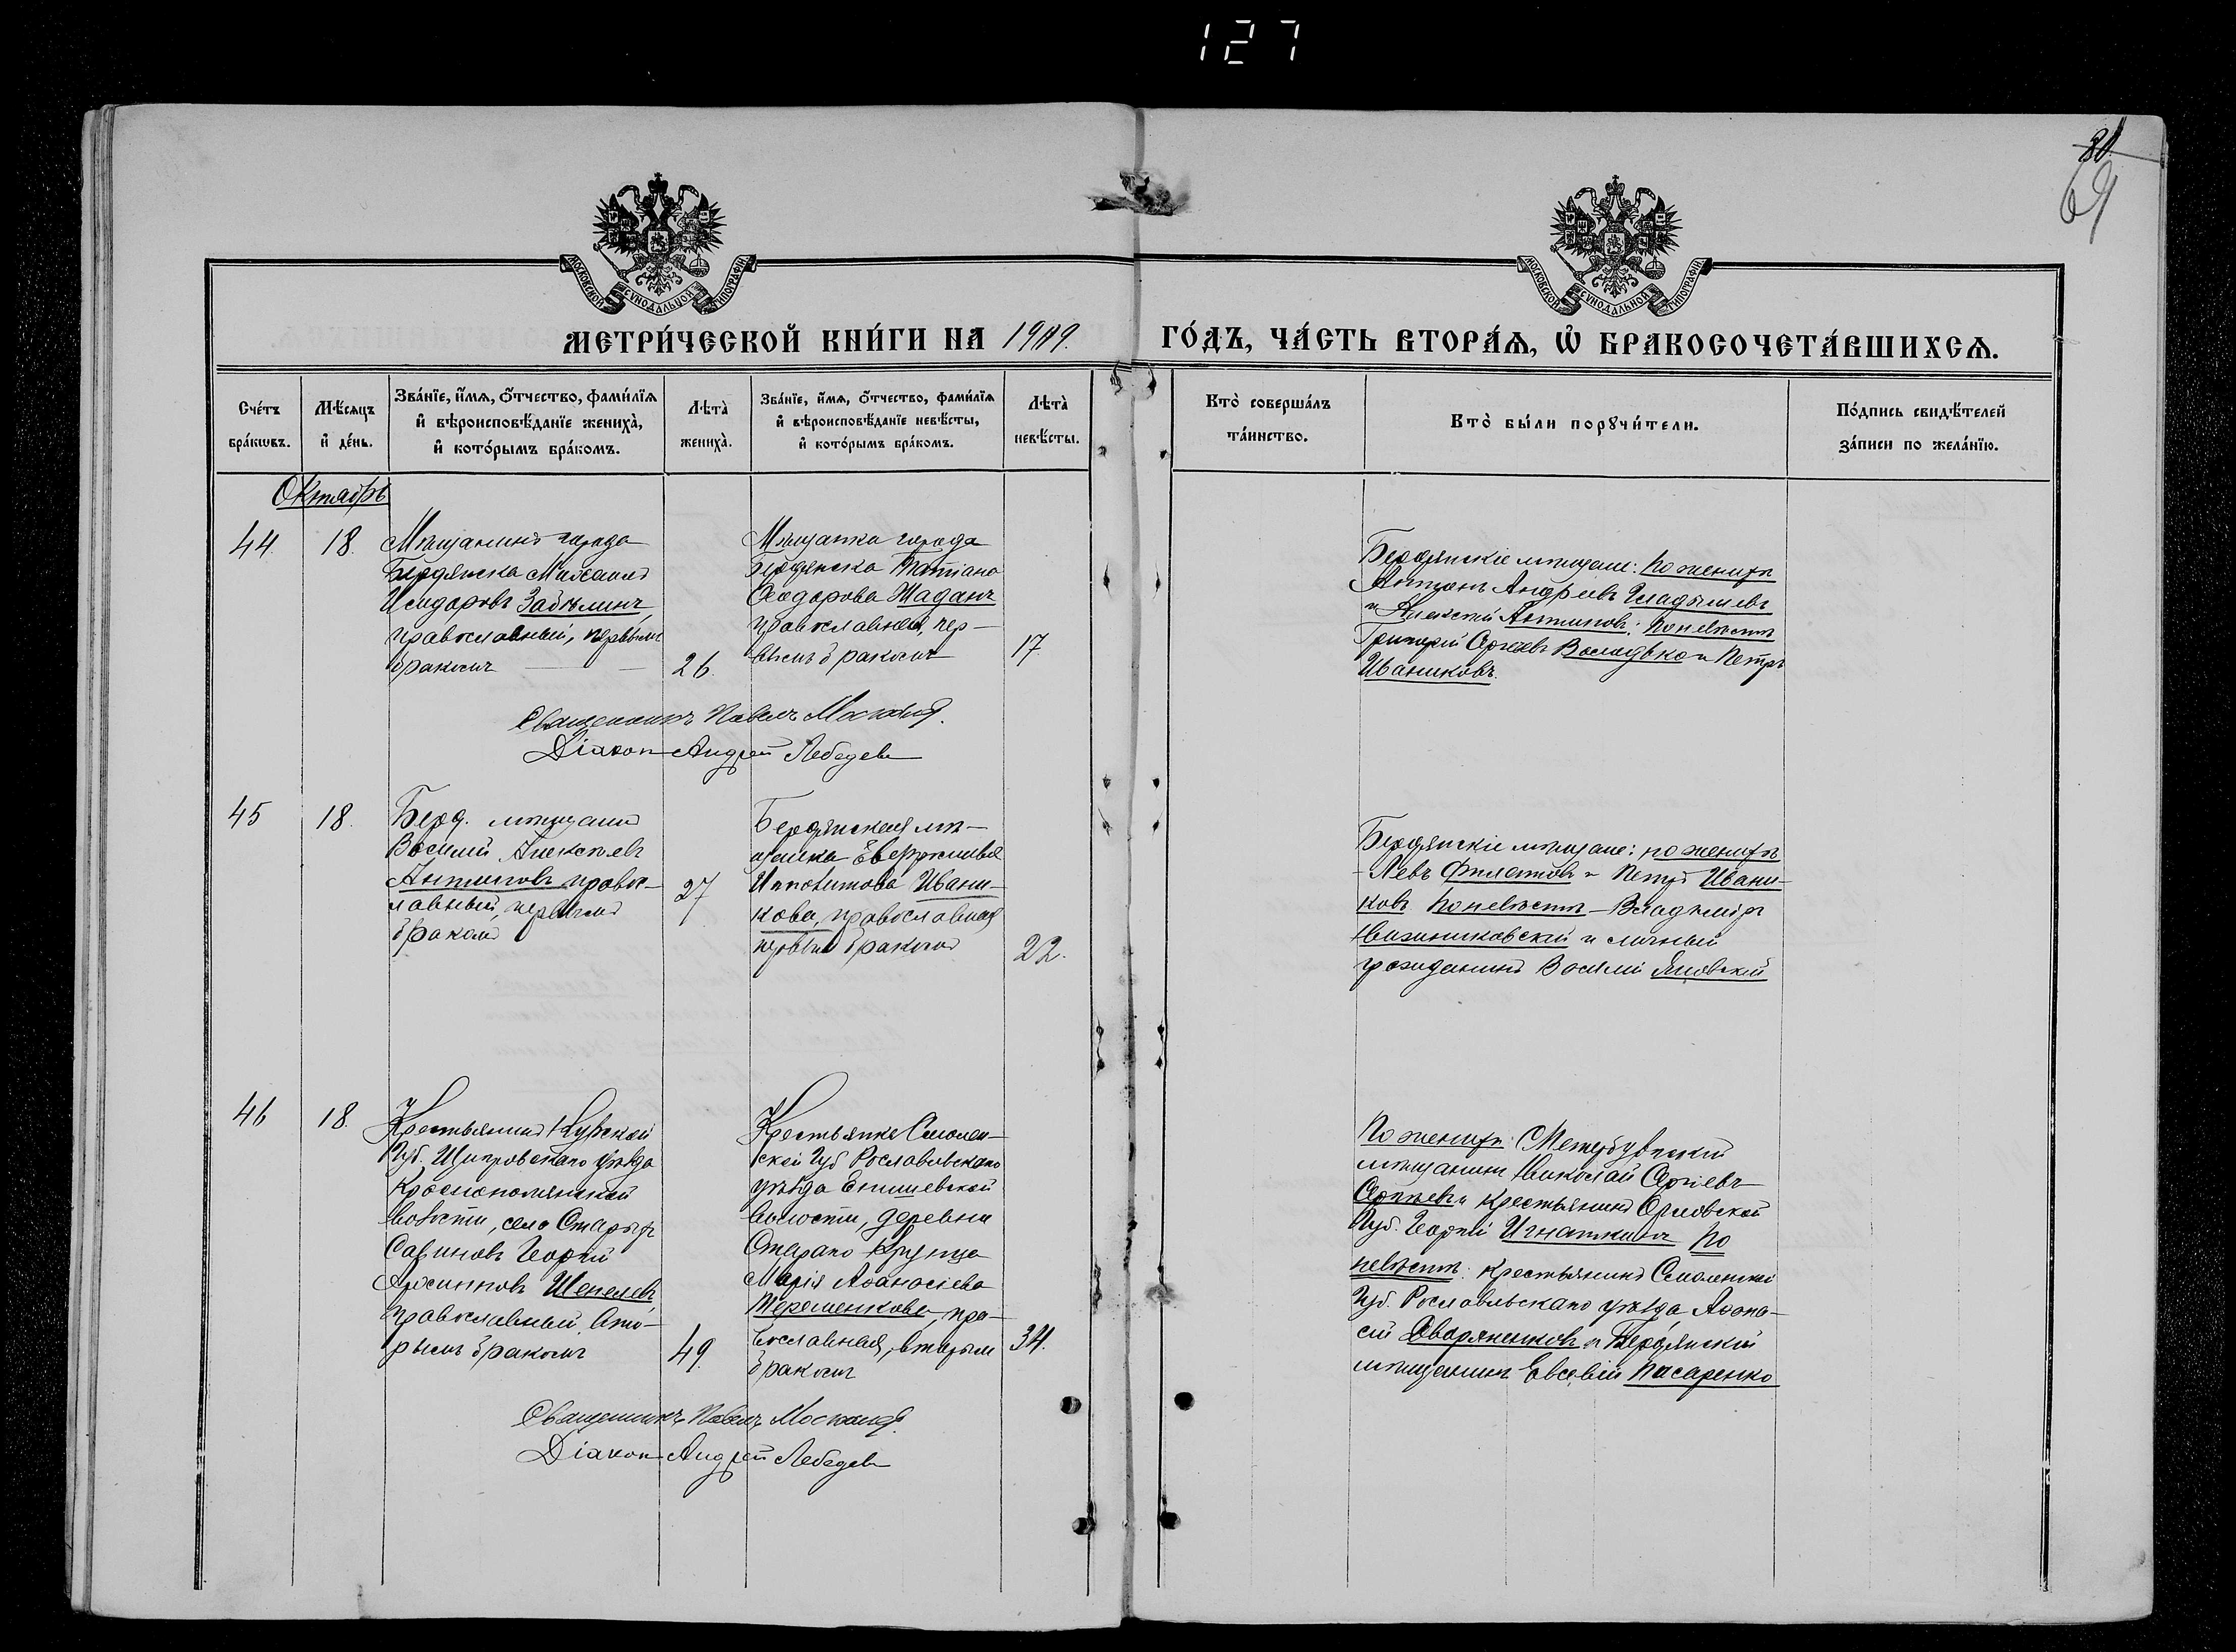 127
80
69
МОСКОВСКОЙ СѴНОДАЛЬНОЙ ТИПОГРАФІИ
МОСКОВСКОЙ СѴНОДАЛЬНОЙ ТИПОГРАФІИ
МЕТРИ́ЧЕСКОЙ КНИ́ГИ НА 1909. ГО́ДЪ, ЧА́СТЬ ВТОРА́Ѧ, Ѡ҆ БРАКОСОЧЕТА́ВШИХСѦ.
Сче́тъ бра́кѡвъ.
Мѣ́сяцъ и҆ де́нь.
Зва́нїе, и҆́мѧ, ѻ҆́тчество, фами́лїѧ
и҆ вѣроисповѣ́данїе жениха̀,
и҆ кото́рымъ бра́комъ.
Лѣта̀ жениха̀.
Зва́нїе, и҆́мѧ, ѻ҆́тчество, фами́лїѧ
и҆ вѣроисповѣ́данїе невѣ́сты,
и҆ кото́рымъ бра́комъ.
Лѣта̀ невѣ́сты.
Кто̀ соверша́лъ та́инство.
Кто̀ бы́ли порꙋчи́тели.
По́дпись свидѣ́телей
за́писи по жела́нїю.
Октябрь
44.
18.
Мѣщанинъ города
Бердянска Михаилъ
Исидоровъ Забѣлинъ,
православный, первымъ
бракомъ
26.
Мѣщанка города
Бердянска Татіана
Ѳеодорова Жаданъ
православная, пер-
вымъ бракомъ
17
Бердянскіе мѣщане: по женихѣ
Андреевъ Гладышевъ
и Алексей Антиповъ; по невѣстѣ
Григорій Сергіевъ Володько и Петръ
Иваниковъ.
Священникъ Павелъ
Діаконъ Андрей Лебедевъ
45
18.
Берд. мѣщанинъ
Василій Алексѣевъ
Антиповъ, правос-
лавный, первымъ
бракомъ
27
Бердянская мѣ-
щанка
Ипполитова Ивани-
кова, православная
первымъ бракомъ
22.
Бердянскіе мѣщане: по женихѣ
- Левъ Филатовъ и Петръ Ивани-
ковъ по невѣстѣ - Владиміръ
и личный
гражданинъ Василій Яновскій
46
18.
Крестьянинъ Курской
Губ. Щигровскаго уѣзда
Краснополянской
волости, село Старыхъ
Савиновъ Георгій
Шепелевъ,
православный, вто-
рымъ бракомъ
49
Крестьянка Смолен-
ской Губ Рославльскаго
уѣзда Епишевской
волости, деревни
Стараго Крупца
Марія Аѳанасіева
Терешенкова, пра-
вославная, вторымъ
бракомъ
34.
По женихѣ:
мѣщанинъ Николай Сергіевъ
Сергѣевъ и крестьянинъ Орловской
Губ. Георгій Игнаткинъ По
невѣстѣ: крестьянинъ Смоленской
Губ. Рославльскаго уѣзда Аѳана-
сій Дворяненковъ и Бердянскій
мѣщанинъ Евсевій Писаренко
Священникъ Павелъ
Діаконъ Андрей Лебедевъ